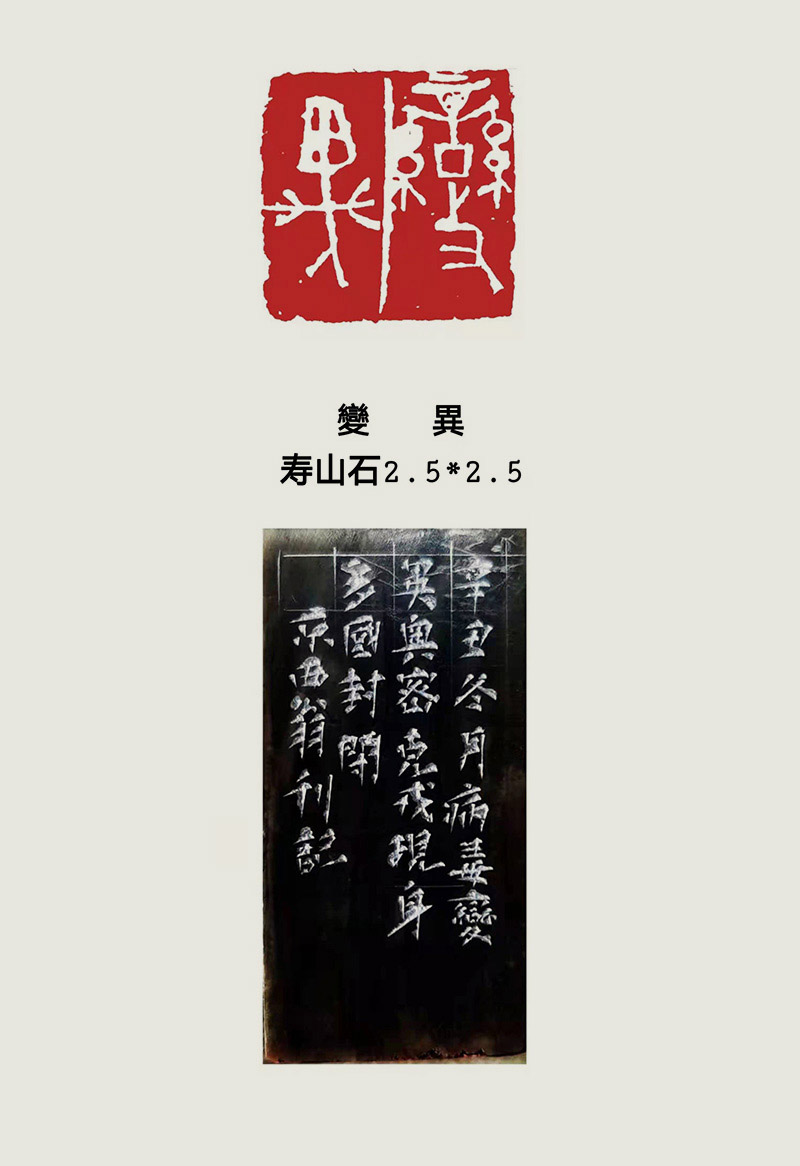 變異
變 異
寿山石2.5*2.5
辛丑冬月病毒變
異奧密克戎現身
多國封閉
京西翁刊記